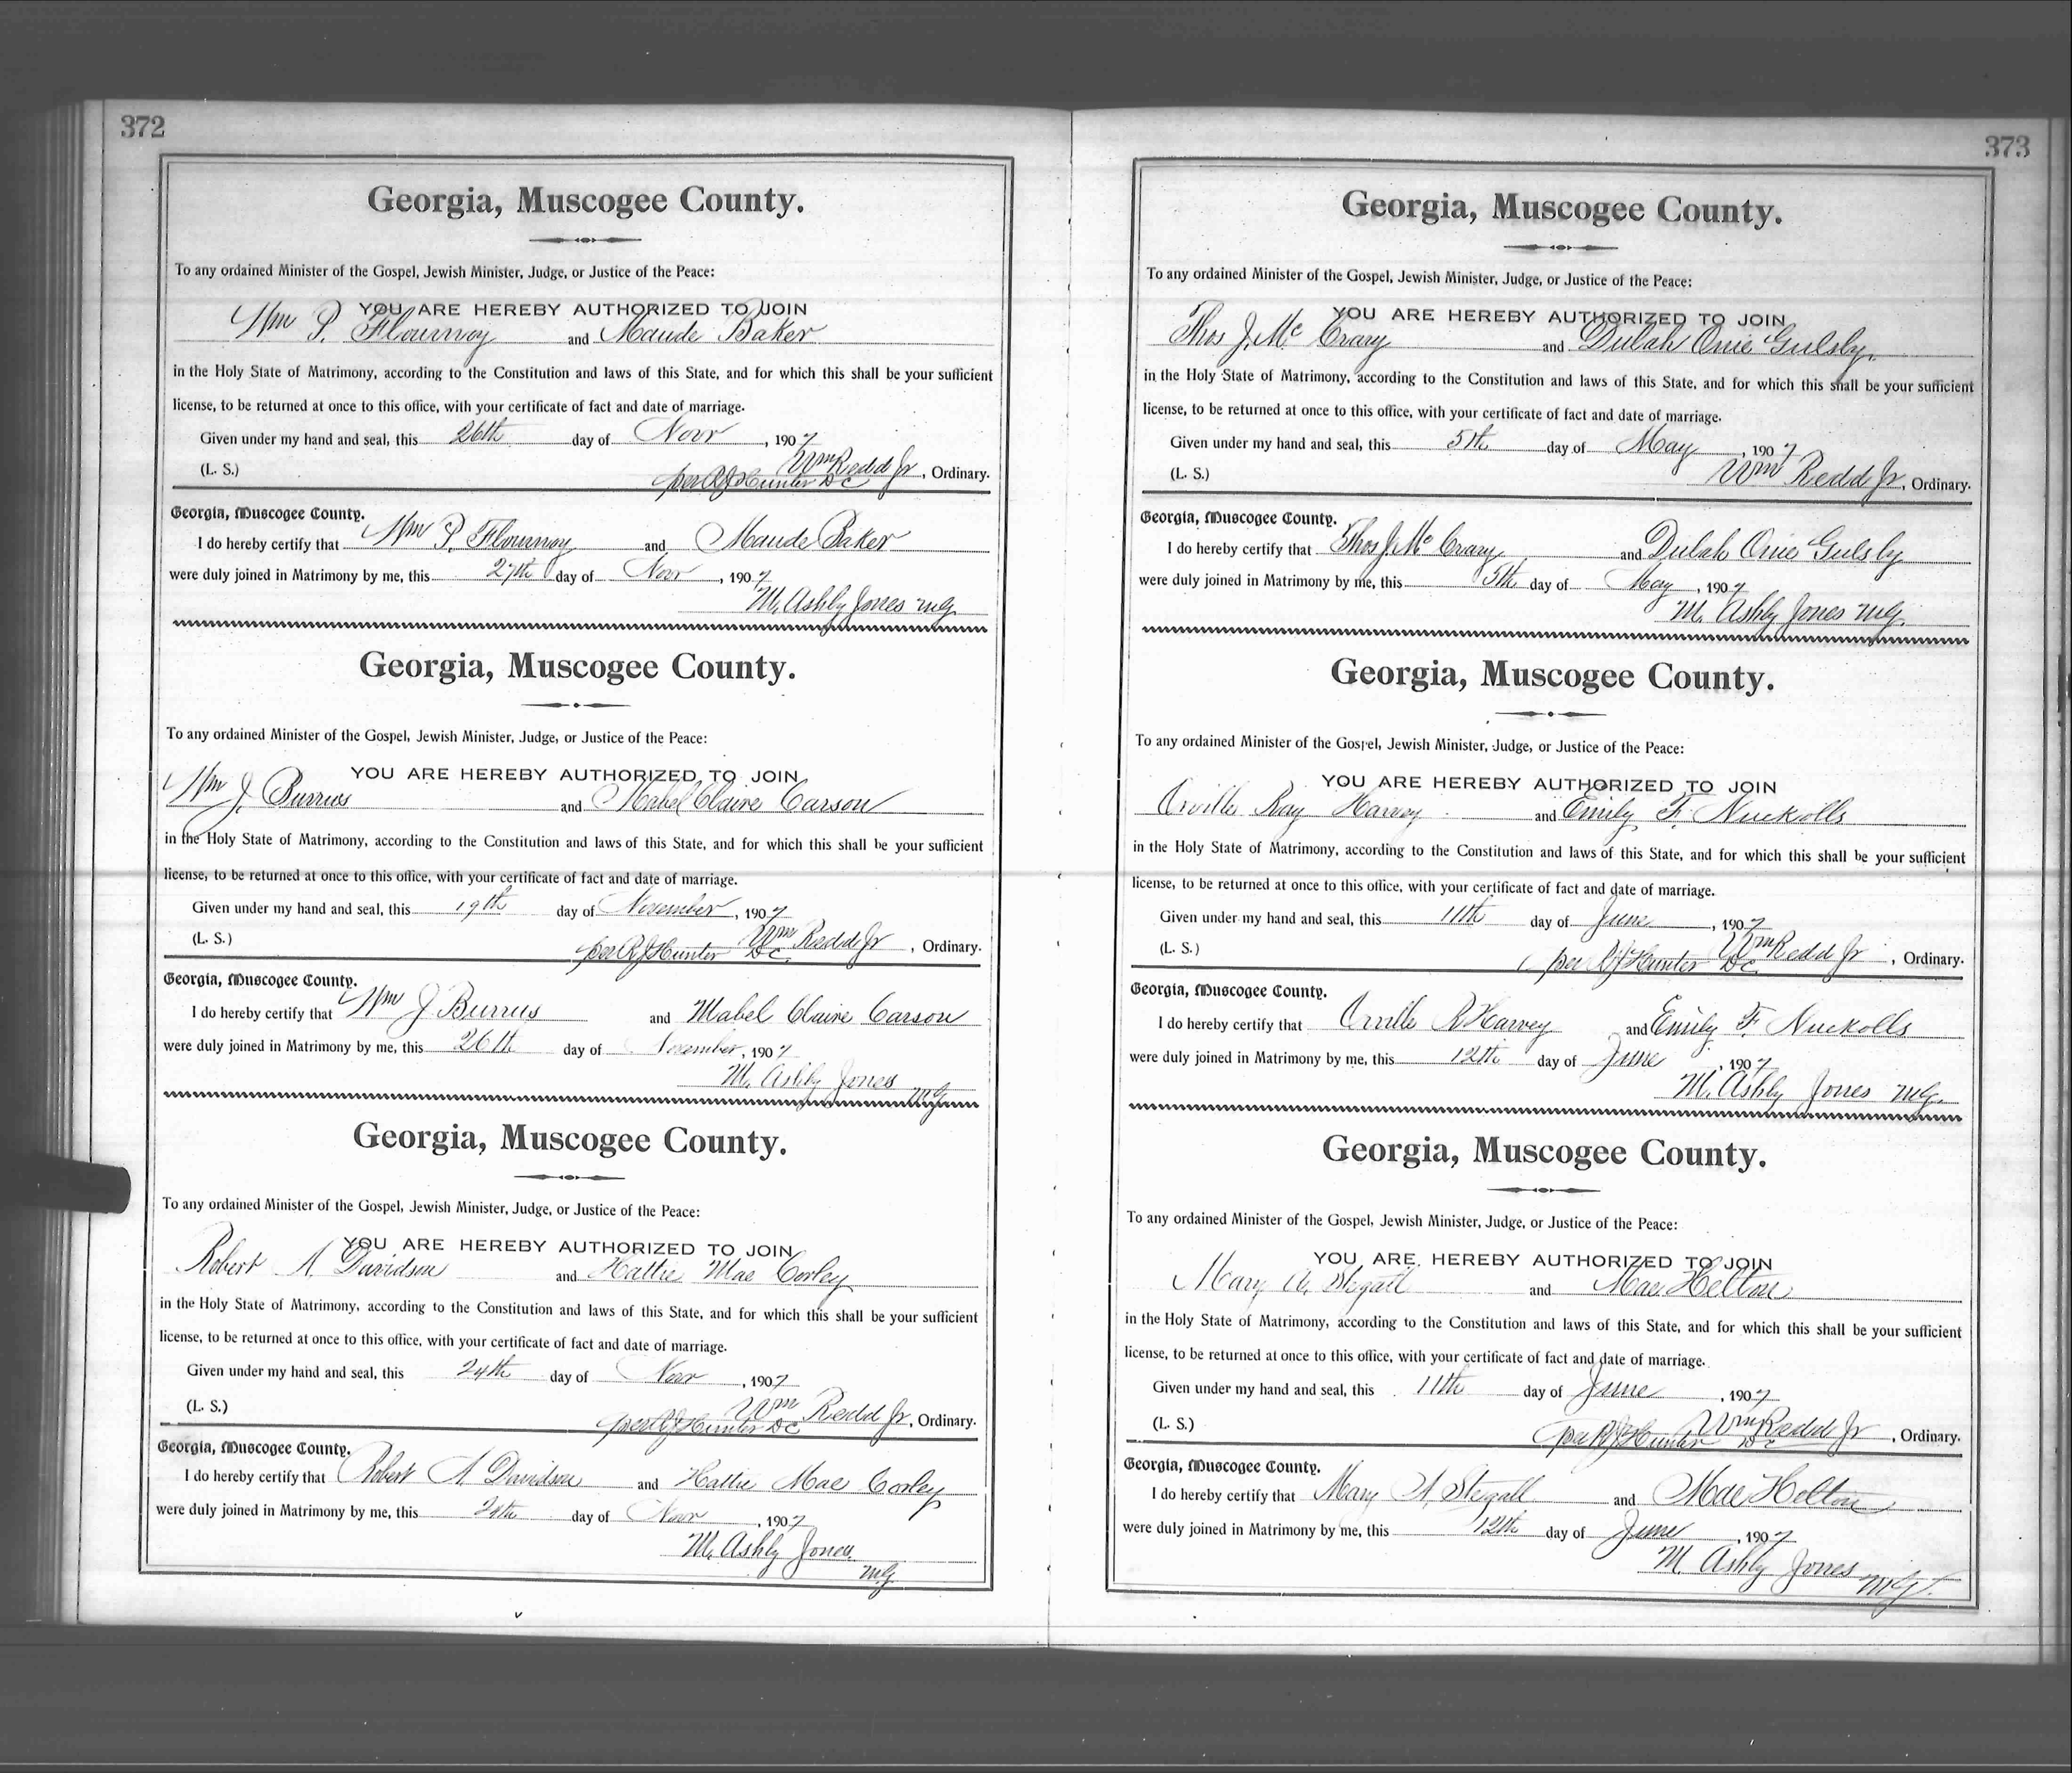 372
Georgia, Muscogee County.
To any ordained Minister of the Gospel, Jewish Minister, Judge, or Justice of the Peace:
YOU ARE HEREBY AUTHORIZED TO JOIN
Wm P. Flournoy and Maude Baker
in the Holy State of Matrimony, according to the Constitution and laws of this State, and for which this shall be your sufficient
license, to be returned at once to this office, with your certificate of fact and date of marriage.
Given under my hand and seal, this 26th day of Novr, 1907
(L. S.) Wm Redd Jr, Ordinary.
per R J Hunter DC
Georgia, Muscogee County.
I do hereby certify that Wm P. Flournoy and Maude Baker
were duly joined in Matrimony by me, this 27th day of Novr, 1907
M. Ashby Jones MG.
Georgia, Muscogee County.
To any ordained Minister of the Gospel, Jewish Minister, Judge, or Justice of the Peace:
YOU ARE HEREBY AUTHORIZED TO JOIN
Wm J. Burrus and Mabel Claire Carson
in the Holy State of Matrimony, according to the Constitution and laws of this State, and for which this shall be your sufficient
license, to be returned at once to this office, with your certificate of fact and date of marriage.
Given under my hand and seal, this 19th day of November, 1907
(L. S.) Wm Redd Jr, Ordinary.
per R J Hunter DC.
Georgia, Muscogee County.
I do hereby certify that Wm J. Burrus and Mabel Claire Carson
were duly joined in Matrimony by me, this 26th day of November, 1907
M. Ashby Jones
MG
Georgia, Muscogee County.
To any ordained Minister of the Gospel, Jewish Minister, Judge, or Justice of the Peace:
YOU ARE HEREBY AUTHORIZED TO JOIN
Robert A. Davidson and Hattie Mae Corley
in the Holy State of Matrimony, according to the Constitution and laws of this State, and for which this shall be your sufficient
license, to be returned at once to this office, with your certificate of fact and date of marriage.
Given under my hand and seal, this 24th day of Novr, 1907
(L. S.) Wm Redd Jr, Ordinary.
per R J Hunter DC
Georgia, Muscogee County.
I do hereby certify that Robert A Davidson and Hattie Mae Corley
were duly joined in Matrimony by me, this 24th day of Novr, 1907
M. Ashby Jones
MG
373
Georgia, Muscogee County.
To any ordained Minister of the Gospel, Jewish Minister, Judge, or Justice of the Peace:
YOU ARE HEREBY AUTHORIZED TO JOIN
Thos J. Mc Crary and Dulah Onie Gulsby.
in the Holy State of Matrimony, according to the Constitution and laws of this State, and for which this shall be your sufficient
license, to be returned at once to this office, with your certificate of fact and date of marriage.
Given under my hand and seal, this 5th day of May, 1907
(L. S.) Wm Redd Jr, Ordinary.
Georgia, Muscogee County.
I do hereby certify that Thos J. Mc Crary and Dulah Onie Gulsby
were duly joined in Matrimony by me, this 5th day of May, 1907
M. Ashby Jones MG.
Georgia, Muscogee County.
To any ordained Minister of the Gospel, Jewish Minister, Judge, or Justice of the Peace:
YOU ARE HEREBY AUTHORIZED TO JOIN
Orville Ray Harvey and Emily F. Nuckolls
in the Holy State of Matrimony, according to the Constitution and laws of this State, and for which this shall be your sufficient
license, to be returned at once to this office, with your certificate of fact and date of marriage.
Given under my hand and seal, this 11th day of June, 1907
(L. S.) Wm Redd Jr, Ordinary.
per R J Hunter DC
Georgia, Muscogee County.
I do hereby certify that Orville R Harvey and Emily F. Nuckolls
were duly joined in Matrimony by me, this 12th day of June, 1907
M. Ashby Jones MG.
Georgia, Muscogee County.
To any ordained Minister of the Gospel, Jewish Minister, Judge, or Justice of the Peace:
YOU ARE HEREBY AUTHORIZED TO JOIN
Mary A. Stegall and Mae Helton
in the Holy State of Matrimony, according to the Constitution and laws of this State, and for which this shall be your sufficient
license, to be returned at once to this office, with your certificate of fact and date of marriage.
Given under my hand and seal, this 11th day of June, 1907
(L. S.) Wm Redd Jr, Ordinary.
per R J Hunter DC
Georgia, Muscogee County.
I do hereby certify that Mary A Stegall and Mae Helton
were duly joined in Matrimony by me, this 12th day of June, 1907
M. Ashby Jones
MG.